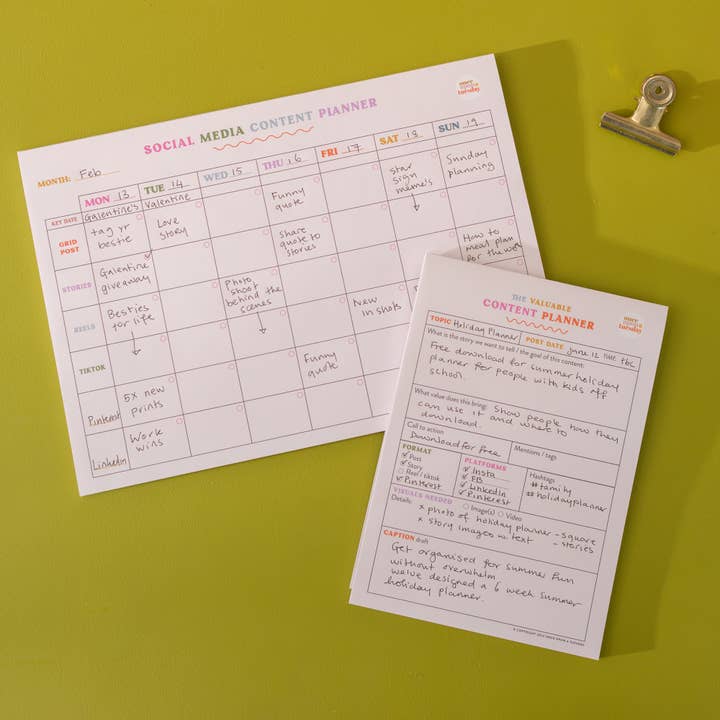 SOCIAL MEDIA CONTENT PLANNER
once upon a tuesday
MONTH: Feb
MON 13 TUE 14 WED 15 THU 16 FRI 17 SAT 18 SUN 19
KEY DATE Galentine's Valentine
GRID POST
tag yr bestie
Love story
Funny quote
star sign meme's
Sunday planning
STORIES
Galentine giveaway
Share quote to stories
How to meal plan for the week
REELS
Besties for life
Photo shoot behind the scenes
New in shots
TIKTOK
Funny quote
Pinterest
5x new prints
Linkedin
Work wins
THE VALUABLE
CONTENT PLANNER
once upon a tuesday
TOPIC Holiday Planner POST DATE June 12 TIME tbc
What is the story we want to tell / the goal of this content:
Free download for summer holiday
planner for people with kids off
school.
What value does this bring: Show people how they
can use it and where to
download.
Call to action
Download for free
Mentions / tags
FORMAT
Post
Story
Reel / tiktok
Pinterest
PLATFORMS
Insta
FB
Linkedin
Pinterest
Hashtags
#family
#holidayplanner
VISUALS NEEDED Image(s) Video
Details: x photo of holiday planner - square
x story images w. text - stories
CAPTION draft
Get organised for summer fun
without overwhelm
we've designed a 6 week summer
holiday planner.